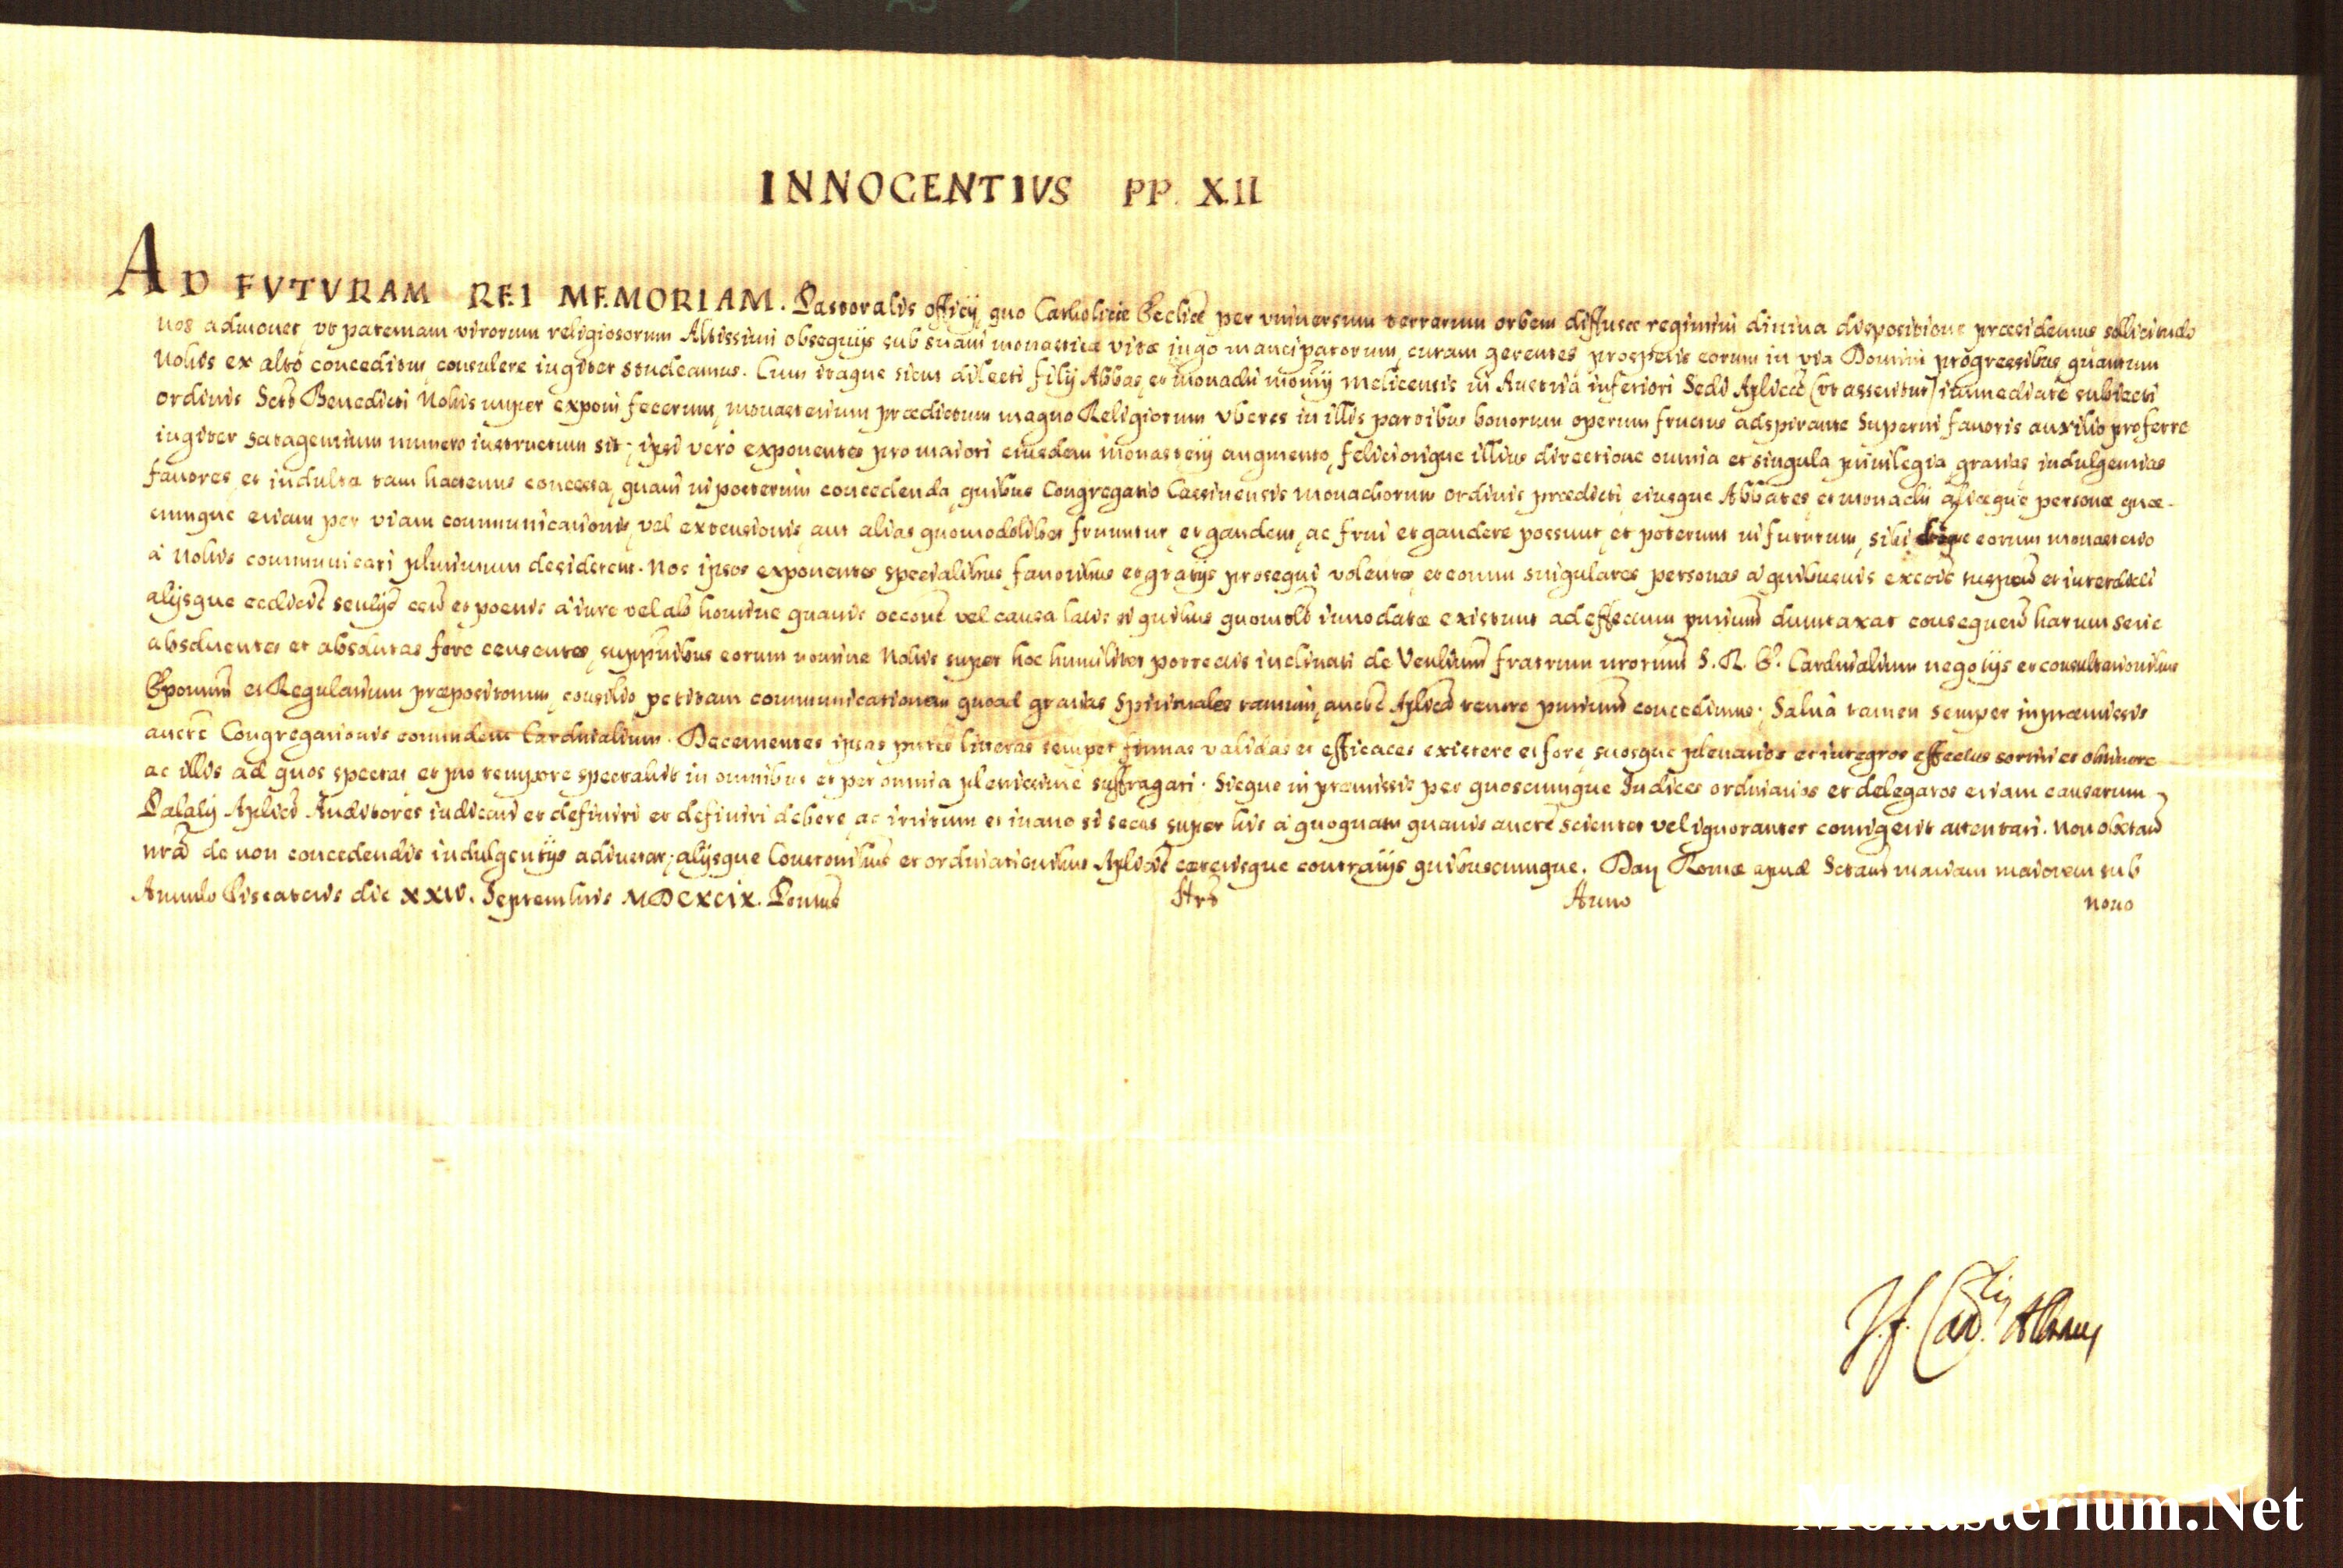 INNOCENTIVS PP. XII
AD FVTVRAM REI MEMORIAM. Pastoralis officij, quo Catholicæ Eccliæ per vniuersum terrarum orbem diffusæ regimini diuina dispositione præsidemus sollicitudo
nos admonet, vt paternam virorum religiosorum Altissimi obsequijs sub suaui monasticæ vitæ iugo mancipatorum, curam gerentes prosperis eorum in via Domini progressibus, quantum
Nobis ex alto conceditur, consulere iugiter studeamus. Cum itaque sicut dilecti filij Abbas, et monachi monrij Melicensis in Austria inferiori Sedi Aplicæ (vt asseritur) immediatè subiecti
ordinis Scti Benedicti Nobis nuper exponi fecerunt, monasterium prædictum magno Religiorum vberes in illis partibus bonorum operum fructus adspirante Superni fauoris auxilio proferre
iugiter satagentium numero instructum sit; ipsi verò exponentes pro maiori eiusdem monasterij augmento, feliciorique illius directione omnia et singula priuilegia, gratias indulgentias
fauores, et indulta tam hactenus concessa, quam in posterum concedenda, quibus Congregatio Cassinensis monachorum ordinis prædicti, eiusque Abbates, et monachi aliæque personæ quæ-
cumque etiam per viam communicationis, vel extensionis, aut alias quomodolibet fruuntur, et gaudent, ac frui et gaudere possunt, et poterunt in futurum, sibi eorum monasterio
à Nobis communicari plurimum desiderent. Nos ipsos exponentes specialibus fauoribus et gratijs prosequi volentes, et eorum singulares personas à quibusuis excoīs suspenˢ et interdicti
alijsque eccliciš senlijs cenˢ et poenis à iure vel ab homine quauis occonē vel causa latis si quibus quomolt innodatæ existunt ad effectum pntium dumtaxat consequenˢ harum serie
absoluentes et absolutas fore censentes, suppnibus eorum nomine Nobis super hoc humiliter porrectis inclinati de Venlium fratrum nrorum S. R. E. Cardinalium negotijs et consultationibus
Eporum et Regularium præpositorum, consilio petitam communicationem quoad gratias Spirituales tantum, aucte Aplica tenore pntium concedimus. Saluâ tamen semper in præmissis
aucte Congregationis eorumdem Cardinalium. Decernentes ipsas pntes litteras semper firmas validas et efficaces existere et fore, suosque plenarios et integros effectus sortiri et obtinere
ac illis ad quos spectat et pro tempore spectabit in omnibus et per omnia plenissimè suffragari. Sicque in præmissis per quoscumque Judices ordinarios et delegatos etiam causarum
Palatij Aplici Auditores iudicari et definiri et definiri debere, ac irritum et inane si secus super his à quoquam quauis aucte scienter vel ignoranter contigerit attentari. Non obstan
nrâ de non concedendis indulgentijs ad instar, alijsque Constonibus et ordinationibus Aplicis cæterisque contrarijs quibuscumque. Dat Romæ apud Sctam mariam maiorem sub
Annulo Piscatoris die XXIV. Septembris MDCXCIX. Pontus Nri Anno nono
J.f. Card.lis Albanus
Monasterium.Net